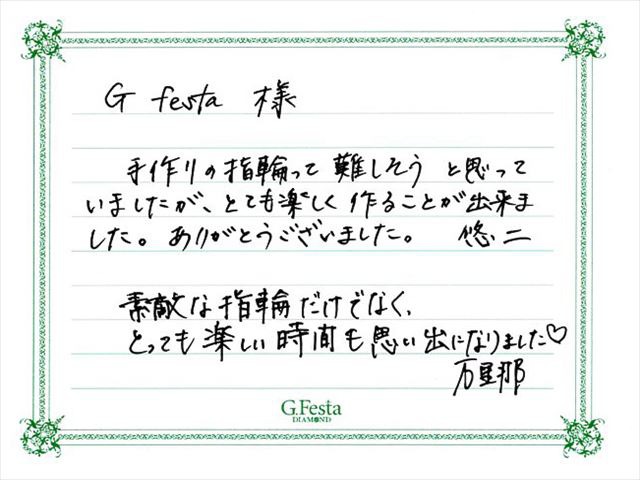 G festa 様
手作りの指輪って難しそう と思って
いましたが、とても楽しく作ることが出来ま
した。ありがとうございました。 悠二
素敵な指輪だけでなく、
とっても楽しい時間も思い出になりました♡
万里那
G.Festa
DIAMOND